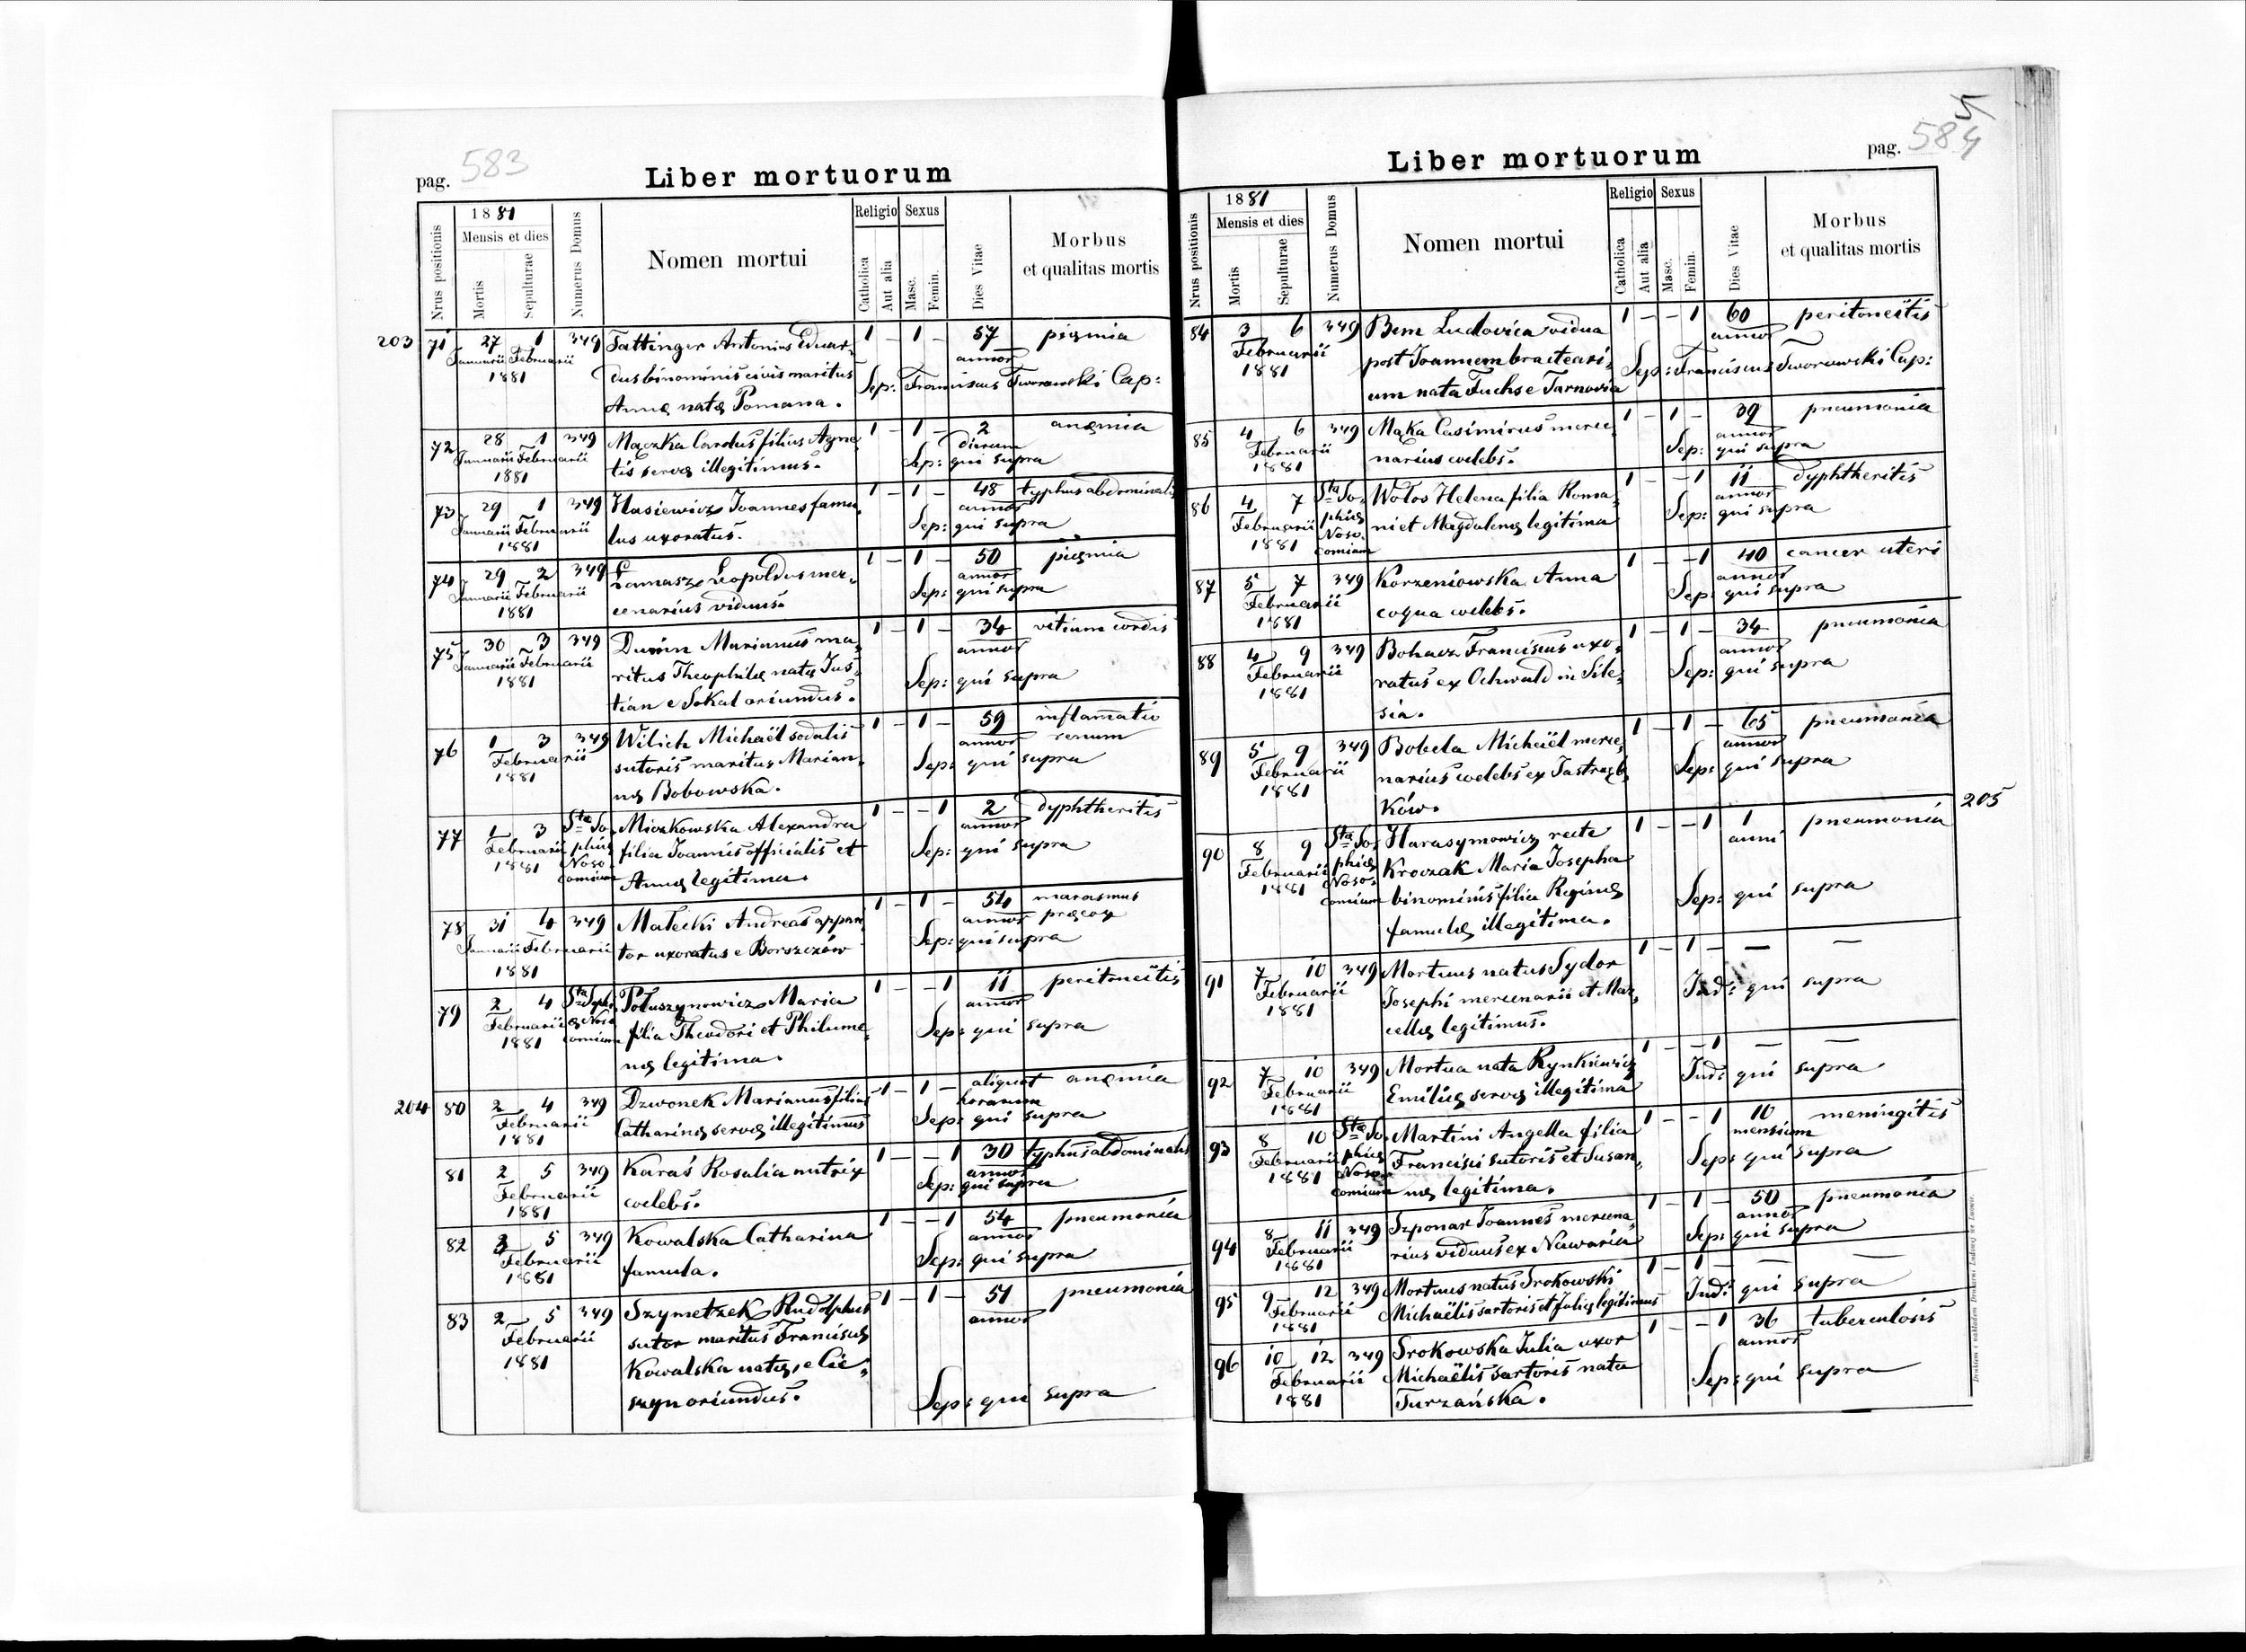 pag. 583
Liber mortuorum
Nrus positionis
1881
Mensis et dies
Mortis
Sepulturae
Numerus Domus
Nomen mortui
Religio
Catholica
Aut alia
Sexus
Masc.
Femin.
Dies Vitae
Morbus
et qualitas mortis
203 71 27 1 349 Tattinger Antonius Eduar, 1 - 1 - 57 pięmia
Januarii Februarii dus binominis civis maritus annor
1881 Annę natę Pomana. Sep: Franciscus Tworowski Cap:
72 28 1 349 Mączka Carolus filius Agne, 1 - 1 - 2 anęmia
Januarii Februarii tis servę illegitimus. dierum
1881 Sep: qui supra
73 29 1 349 Hasiewicz Joannes famu, 1 - 1 - 48 typhus abdominalis
Januarii Februarii lus uxoratus. annor
1881 Sep: qui supra
74 29 2 349 Łamasz Leopoldus mer, 1 - 1 - 50 pięmia
Januarii Februarii cenarius viduus. annor
1881 Sep: qui supra
75 30 3 349 Dunin Marianus ma, 1 - 1 - 34 vitium cordis
Januarii Februarii ritus Theophilę natę Jus, annor
1881 tian e Sokal oriundus. Sep: qui supra
76 1 3 349 Wilich Michaël sodalis 1 - 1 - 59 inflamatio
Februarii sutoris maritus Marian, annor renum
1881 nę Bobowska. Sep: qui supra
77 1 3 Sta So, Miczkowska Alexandra 1 - - 1 2 dyphtheritis
Februarii phię filia Joannis officialis et annor
1881 Noso, comium Annę legitima. Sep: qui supra
78 31 4 349 Małecki Andreas appari 1 - 1 - 54 marasmus
Januarii Februarii tor uxoratus e Borszczów annor pręcox
1881 Sep: qui supra
79 2 4 Sta Soph, Połuszynowicz Maria 1 - - 1 11 peritoneitis
Februarii ię Noso filia Theodori et Philume, annor
1881 comium nę legitima. Sep: qui supra
204 80 2 4 349 Dzwonek Marianus filius 1 - 1 - aliquot anęmia
Februarii Catharinę servę illegitimus horarum
1881 Sep: qui supra
81 2 5 349 Karaś Rosalia nutrix 1 - - 1 30 typhus abdominalis
Februarii coelebs. annor
1881 Sep: qui supra
82 3 5 349 Kowalska Catharina 1 - - 1 54 pneumonia
Februarii famula. annor
1881 Sep: qui supra
83 2 5 349 Szymetzek Rudolphus 1 - 1 - 51 pneumonia
Februarii sutor maritus Franciscę annor
1881 Kowalska natę, e Cie,
szyn oriundus. Sep: qui supra
pag. 584
5
Liber mortuorum
Nrus positionis
1881
Mensis et dies
Mortis
Sepulturae
Numerus Domus
Nomen mortui
Religio
Catholica
Aut alia
Sexus
Masc.
Femin.
Dies Vitae
Morbus
et qualitas mortis
84 3 6 349 Bem Ludovica vidua 1 - - 1 60 peritoneitis
Februarii post Joannem bracteari, annor
1881 um nata Fuchs e Tarnovia Sep: Franciscus Tworowski Cap:
85 4 6 349 Mąka Casimirus merce, 1 - 1 - 39 pneumonia
Februarii narius coelebs. annor
1881 Sep: qui supra
86 4 7 Sta So, Wołos Helena filia Roma, 1 - - 1 11 dyphtheritis
Februarii phię ni et Magdalenę legitima annor
1881 Noso, comium Sep: qui supra
87 5 7 349 Korzeniowska Anna 1 - - 1 40 cancer uteri
Februarii coqua coelebs. annor
1881 Sep: qui supra
88 4 9 349 Bohacz Franciscus uxo, 1 - 1 - 34 pneumonia
Februarii ratus ex Ochwald in Sile, annor
1881 sia. Sep: qui supra
89 5 9 349 Bobela Michaël merce, 1 - 1 - 65 pneumonia
Februarii narius coelebs ex Jastrzęb, annor
1881 ków. Sep: qui supra
205
90 8 9 Sta So, Harasymowicz recte 1 - - 1 1 pneumonia
Februarii phię Kroczak Maria Josepha anni
1881 Noso, comium binominis filia Reginę Sep: qui supra
famulę illegitima.
91 7 10 349 Mortuus natus Sydor 1 - 1 - — —
Februarii Josephi mercenarii et Mar, Ind: qui supra
1881 cellę legitimus.
92 7 10 349 Mortua nata Rynkiewicz 1 - - 1 — —
Februarii Emilię servę illegitima Ind: qui supra
1881
93 8 10 Sta So, Martini Angella filia 1 - - 1 10 meningitis
Februarii phię Francisci sutoris et Susan, mensium
1881 Noso, comium nę legitima. Sep: qui supra
94 8 11 349 Szponar Joannes mercena, 1 - 1 - 50 pneumonia
Februarii rius viduus ex Nawaria annor
1881 Sep: qui supra
95 9 12 349 Mortuus natus Srokowski 1 - 1 - — —
Februarii Michaëlis sartoris et Julię legitimus Ind: qui supra
1881
96 10 12 349 Srokowska Julia uxor 1 - - 1 36 tuberculosis
Februarii Michaëlis sartoris nata annor
1881 Turzańska. Sep: qui supra